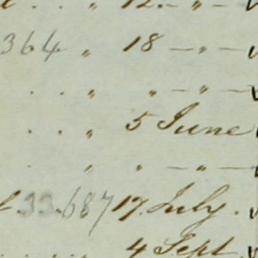 12. - " -
364 " 18 - " -
. . " " - " -
. . " 5 June
. " " - " -
33.687 17 July.
. . " 4 Sept